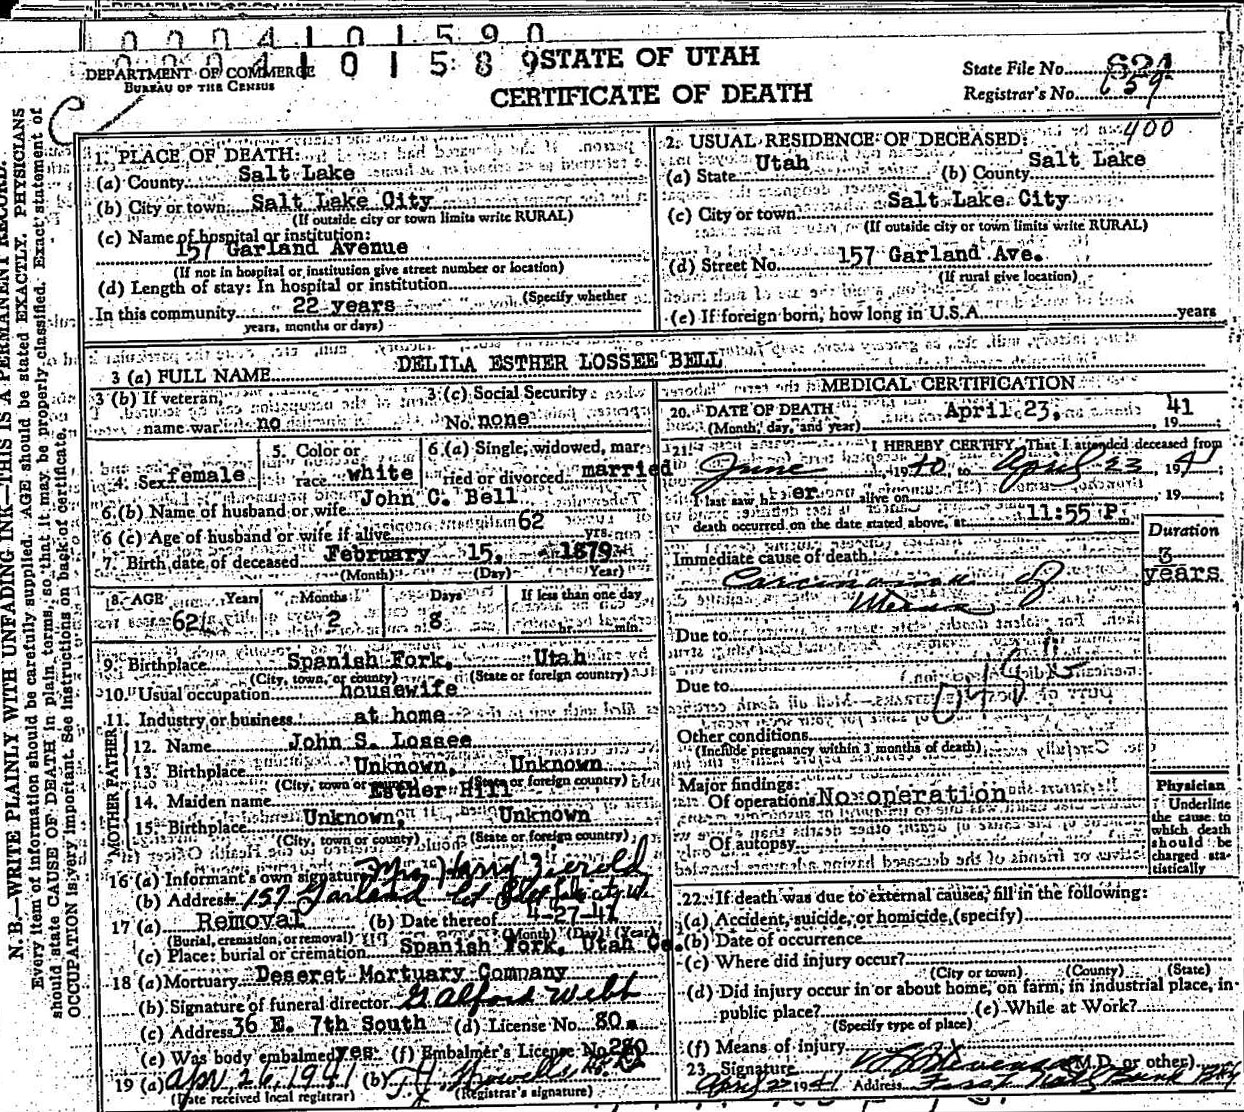 0 0 0 4 1 0 1 5 9 0
0 0 0 4 1 0 1 5 8 9
DEPARTMENT OF COMMERCE
BUREAU OF THE CENSUS
STATE OF UTAH
CERTIFICATE OF DEATH
State File No. 621
Registrar's No. 659
400
N. B.—WRITE PLAINLY WITH UNFADING INK—THIS IS A PERMANENT RECORD.
Every item of information should be carefully supplied. AGE should be stated EXACTLY. PHYSICIANS
should state CAUSE OF DEATH in plain terms, so that it may be properly classified. Exact statement of
OCCUPATION is very important. See instructions on back of certificate.
1. PLACE OF DEATH:
(a) County Salt Lake
(b) City or town Salt Lake City
(If outside city or town limits write RURAL)
(c) Name of hospital or institution:
157 Garland Avenue
(If not in hospital or institution give street number or location)
(d) Length of stay: In hospital or institution
(Specify whether
In this community 22 years
years, months or days)
2. USUAL RESIDENCE OF DECEASED:
(a) State Utah (b) County Salt Lake
(c) City or town Salt Lake City
(If outside city or town limits write RURAL)
(d) Street No. 157 Garland Ave.
(If rural give location)
(e) If foreign born, how long in U.S.A. years
3 (a) FULL NAME DELILA ESTHER LOSSEE BELL
3 (b) If veteran,
name war no
3 (c) Social Security
No. none
4. Sex female
5. Color or
race white
6 (a) Single, widowed, mar-
ried or divorced married
6 (b) Name of husband or wife John C. Bell
6 (c) Age of husband or wife if alive 62 yrs.
7. Birth date of deceased February 15, 1879
(Month) (Day) (Year)
8. AGE Years Months Days If less than one day
62 2 8 hr. min.
9. Birthplace Spanish Fork, Utah
(City, town, or county) (State or foreign country)
10. Usual occupation housewife
11. Industry or business at home
FATHER
12. Name John S. Lossee
13. Birthplace Unknown, Unknown
(City, town or county) (State or foreign country)
MOTHER
14. Maiden name Esther Hill
15. Birthplace Unknown, Unknown
(City, town or county) (State or foreign country)
16 (a) Informant's own signature Mrs Zierold
(b) Address 157 Garland
17 (a) Removal (b) Date thereof 4-27-41
(Burial, cremation, or removal) (Month) (Day) (Year)
(c) Place: burial or cremation Spanish Fork, Utah Co.
18 (a) Mortuary Deseret Mortuary Company
(b) Signature of funeral director Galford Webb
(c) Address 36 E. 7th South (d) License No. 80
(e) Was body embalmed yes (f) Embalmer's License No. 280
19 (a) Apr. 26, 1941 (b)
(Date received local registrar) (Registrar's signature)
MEDICAL CERTIFICATION
20. DATE OF DEATH April 23, 19 41
(Month, day, and year)
21. I HEREBY CERTIFY, That I attended deceased from
June 1940 to April 23, 1941
I last saw her alive on , 19 ;
death occurred on the date stated above, at 11:55 P m.
Duration
Immediate cause of death
3 years
Carcinoma of
Due to
Due to
Other conditions
(Include pregnancy within 3 months of death)
Major findings:
Of operations No operation
Of autopsy
Physician
Underline
the cause to
which death
should be
charged sta-
tistically
22. If death was due to external causes, fill in the following:
(a) Accident, suicide, or homicide (specify)
(b) Date of occurrence
(c) Where did injury occur?
(City or town) (County) (State)
(d) Did injury occur in or about home, on farm, in industrial place, in
public place? (e) While at Work?
(Specify type of place)
(f) Means of injury
23. Signature (M.D. or other)
Address